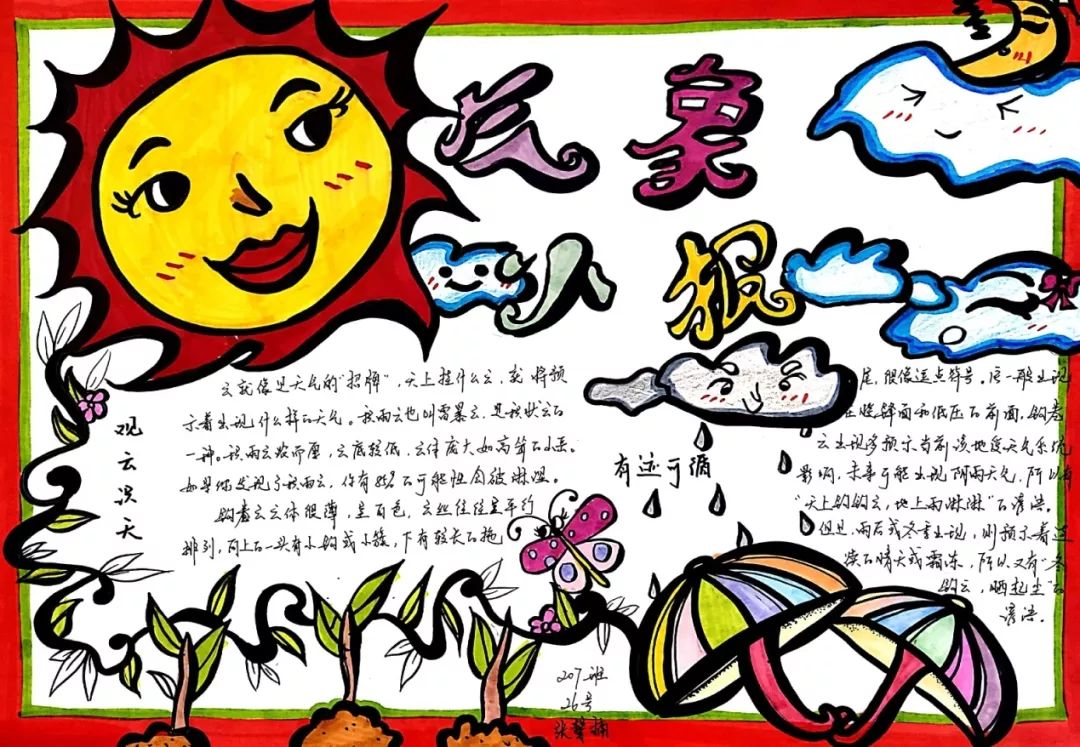 气象
小报
观云识天
云就像是天气的“招牌”，天上挂什么云，就将预
示着出现什么样的天气。积雨云也叫雷暴云，是积状云的
一种。积雨云浓而厚，云底较低，云体庞大如高耸的山岳。
如果你发现了积雨云，你有的可能性会被淋湿。
钩卷云云体很薄，呈白色，云丝往往呈平行
排列，向上的一头有小钩或小簇，下有较长的拖
有迹可循
尾，很像逗点符号。它一般出现
在暖锋面和低压的前面，钩卷
云出现多预示当前该地受天气系统
影响，未来可能出现阴雨天气，所以有
“天上钩钩云，地上雨淋淋”的谚语。
但是，雨后或冬季出现，则预示着连
续的晴天或霜冻，所以又有“冬
钩云，晒起尘”的
谚语。
207班
26号
张